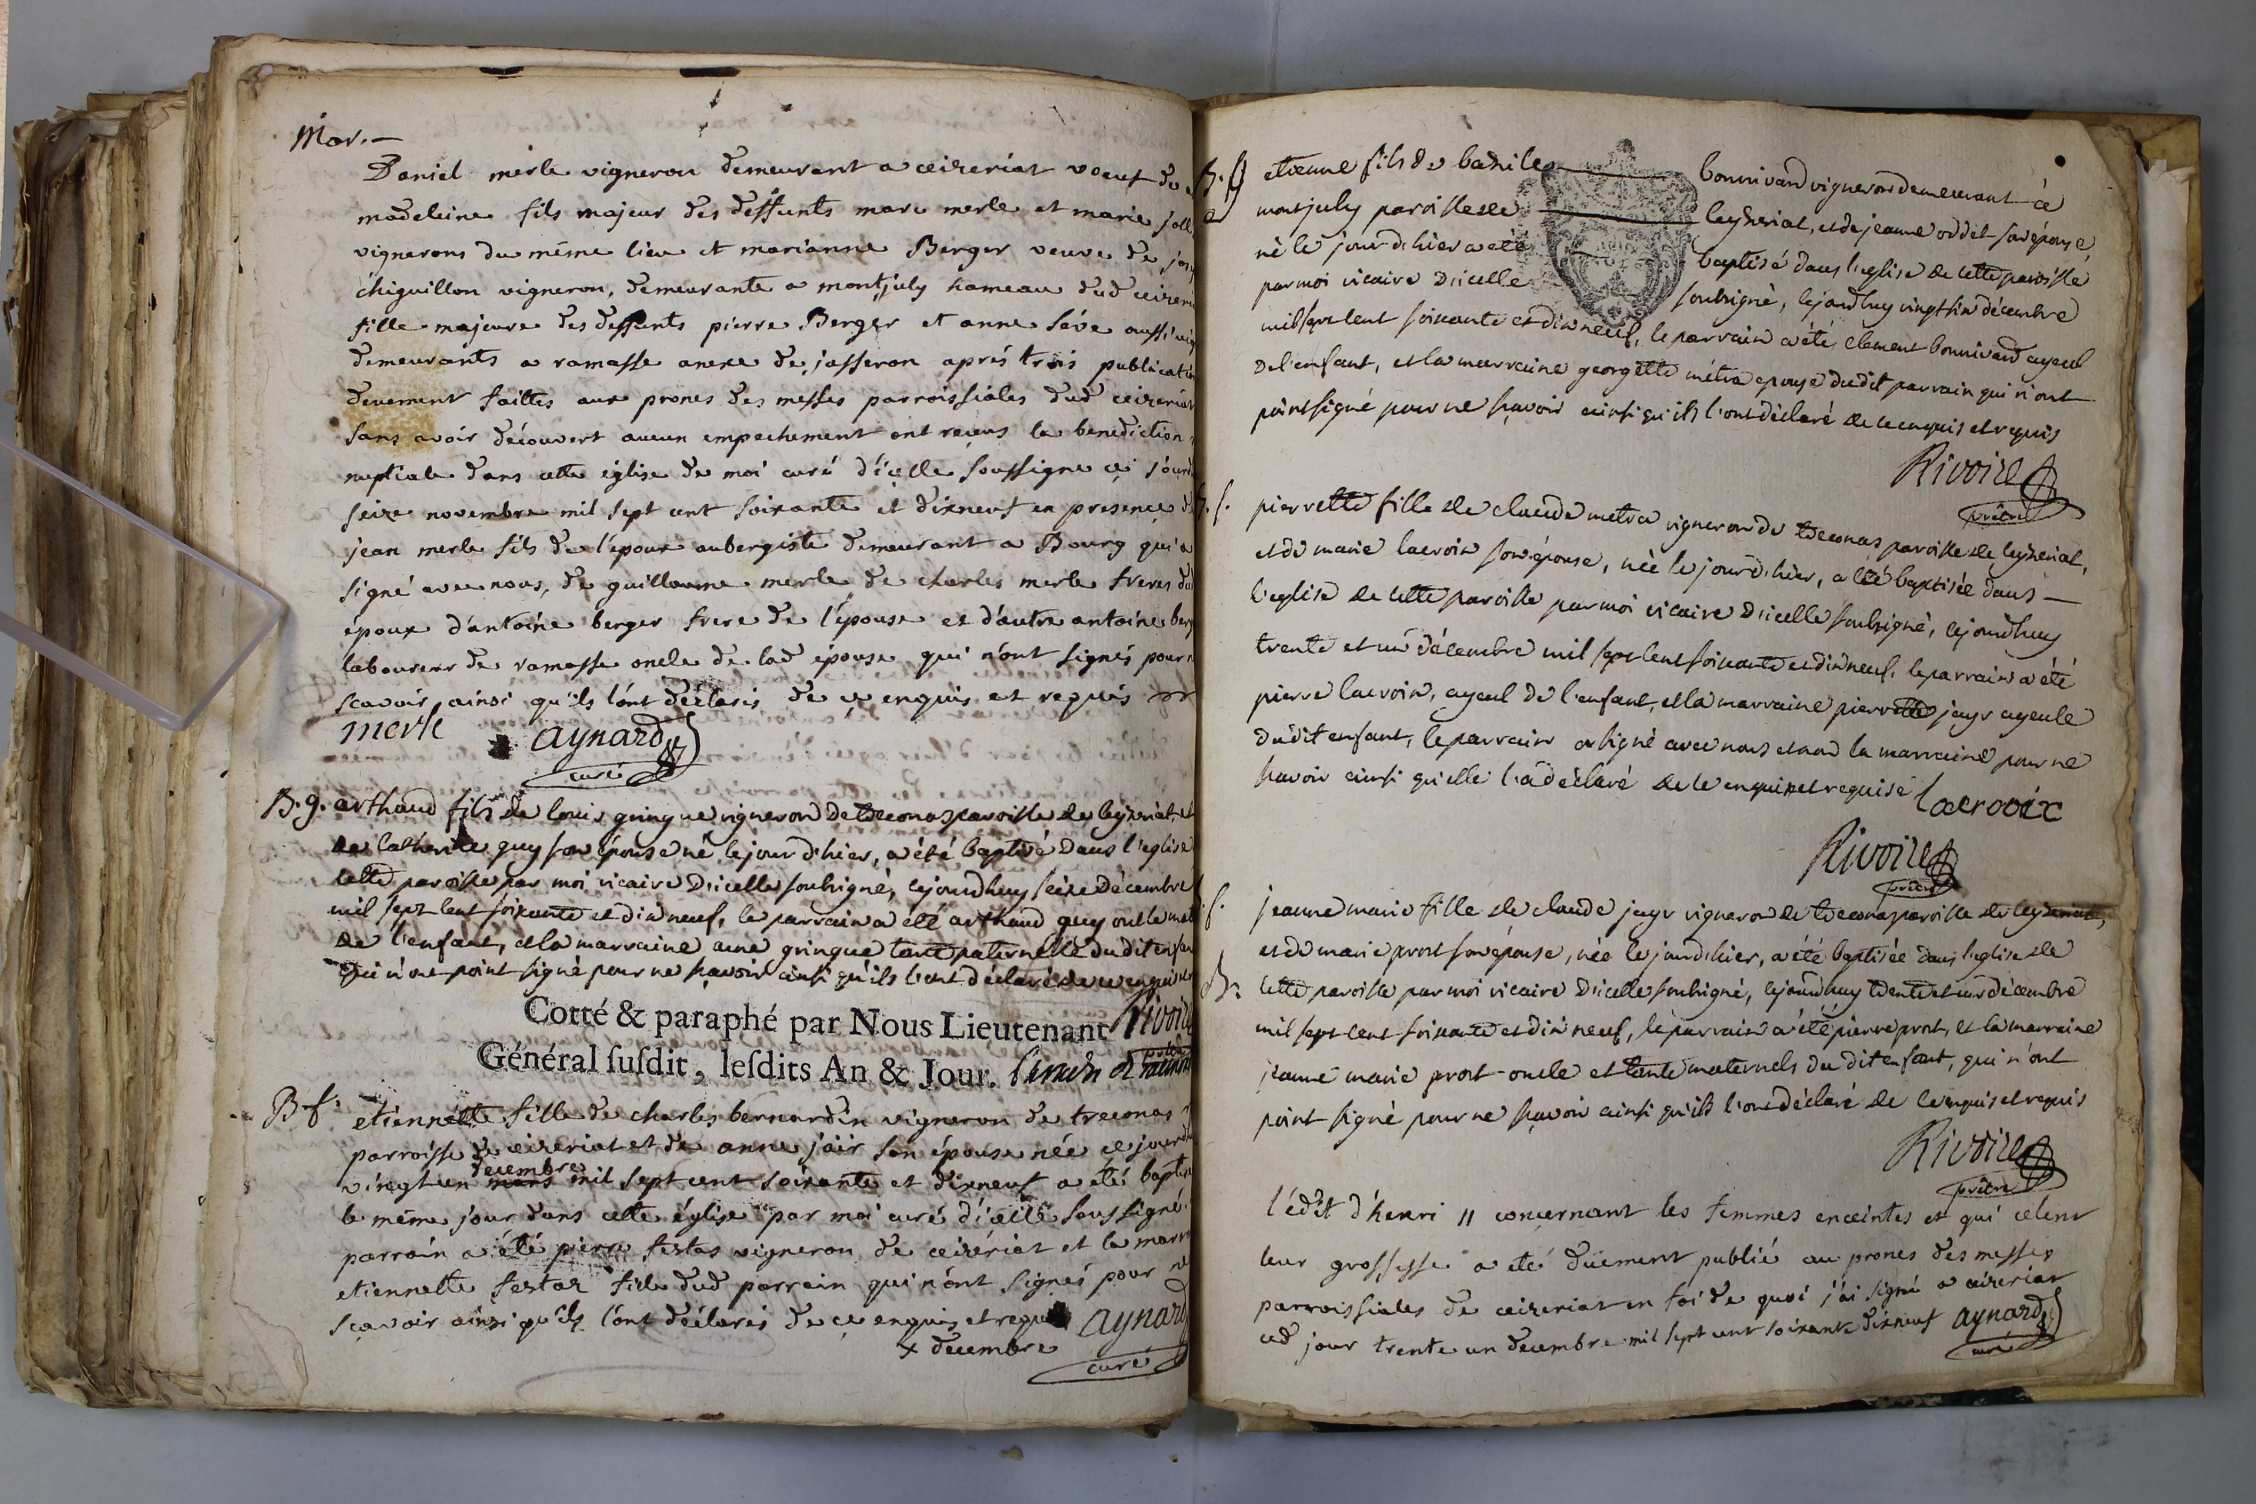 Mar. —
Daniel merle vigneron demeurant a ceizeriat voeuf de
madeleine fils majeur des deffunts marc merle et marie
vignerons du même lieu et marianne Berger veuve de
chiguillon vigneron, demeurante a montjuly hameau dud
fille majeure des deffunts pierre Berger et anne séve aussi
demeurants a ramasse anexe de jasseron aprés trois
deuement faittes aux prones des messes parroissiales dud ceizeriat
sans avoir découvert aucun empechement ont reçeus la benediction
nuptiale dans cette église de moi curé d'icelle soussigne ce
seize novembre mil sept cent soixante et dixneuf en presence
jean merle fils de l'époux aubergiste demeurant a Bourg qui a
signé avec nous, de guillaume merle de charles merle freres
époux d'antoine berger frere de l'épouse et d'autre antoine
laboureur de ramasse oncle de lad épouse qui n'ont signés pour
scavoir ainsi qu'ils l'ont déclarés de ce enquis et requis
merle aynard
curé
B. g. arthaud fils de louis gringue vigneron de treconas paroisse de ceyzeriat, et
de catherine guy son épouse né le jour d'hier, a été baptisé dans l'eglise
cette paroisse par moi vicaire d'icelle soubsigné, cejourdhuy seize décembre
mil sept cent soixante et dix neuf, le parrain a été arthaud guy oncle
de l'enfant, et la marraine aine gringue tante paternelle dudit
qui n'ont point signé pour ne scavoir ainsi qu'ils l'ont déclaré de ce
Cotté & paraphé par Nous Lieutenant Rivoire
Général susdit, lesdits An & Jour.
B f. etiennette fille de charles bernardin vigneron de treconas
parroisse de ceizeriat et de anne jair son épouse née ce
decembre
vingt un mars mil sept cent soixante et dixneuf a été
le même jour dans cette église par moi curé d'icelle soussigné
parrain a été pierre festas vigneron de ceizériat et la
etiennette festaz fille dud parrein qui n'ont signés pour
scavoir ainsi qu'ils l'ont déclarés de ce enquis et requis aynard
x decembre
curé
B. g etienne fils de bazile bonnivard vigneron demeurant à
montjuly paroisse de ceyzeriat, et de jeanne oddet son épouse,
né le jour d'hier a été baptisé dans l'eglise de cette paroisse
par moi vicaire d'icelle soubsigné, cejourdhuy vingt six décembre
mil sept cent soixante et dix neuf, le parrain a été clement bonnivard ayeul
de l'enfant, et la marraine georgette métra epouse dudit parrain qui n'ont
point signé pour ne scavoir ainsi qu'ils l'ont déclaré de ce enquis et requis
Rivoire
prêtre
pierrette fille de claude metra vigneron de treconas paroisse de ceyzeriat,
et de marie lacroix son épouse, née le jour d'hier, a été baptisée dans —
l'eglise de cette paroisse par moi vicaire d'icelle soubsigné, cejourdhuy
trente et un décembre mil sept cent soixante et dix neuf, le parrain a été
pierre lacroix, ayeul de l'enfant, et la marraine pierrette jayr ayeule
dudit enfant, le parrain a signé avec nous et non la marraine pour ne
scavoir ainsi qu'elle l'a déclaré de ce enquise et requise lacroix
Rivoire
prêtre
jeanne marie fille de claude jayr vigneron de treconas paroisse de ceyzeriat,
et de marie prost son épouse, née le jour d'hier, a été baptisée dans l'eglise de
cette paroisse par moi vicaire d'icelle soubsigné, cejourdhuy trente et un décembre
mil sept cent soixante et dix neuf, le parrain a été pierre prost, et la marraine
jeanne marie prost oncle et tante maternels dudit enfant, qui n'ont
point signé pour ne scavoir ainsi qu'ils l'ont déclaré de ce enquis et requis
Rivoire
prêtre
l'édit d'henri II concernant les femmes enceintes et qui célent
leur grossesse a été düement publié au prones des messes
parroissiales de ceizeriat en foi de quoi j'ai signé a ceizeriat
ced jour trente un decembre mil sept cent soixante dixneuf aynard
curé